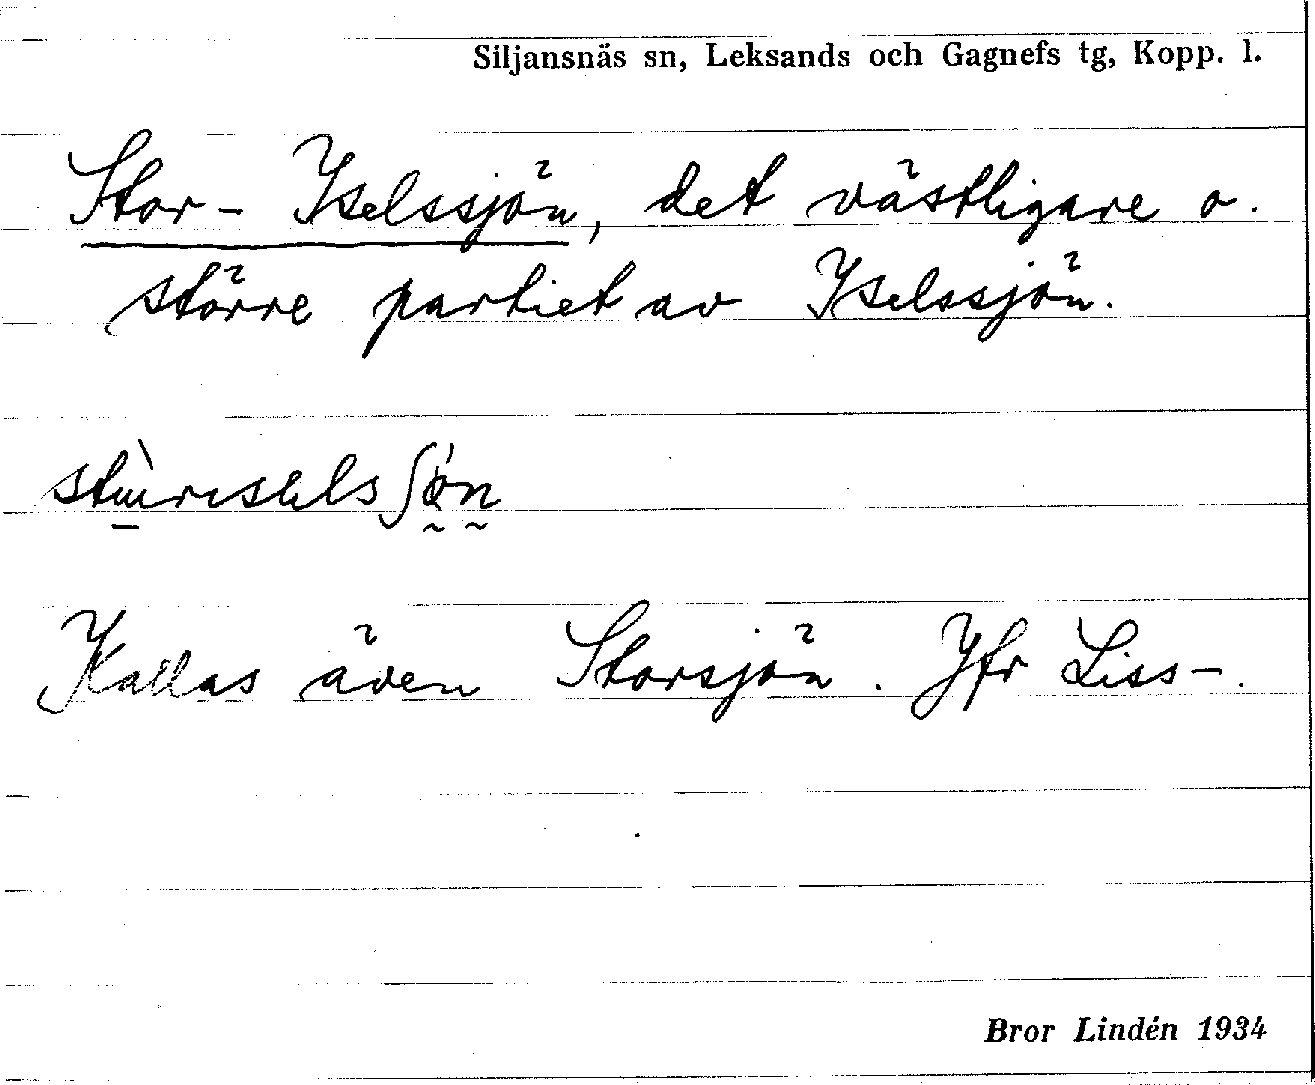 Siljansnäs sn, Leksands och Gagnefs tg, Kopp. l.
Stor- Iselssjön, det västligare o.
större partiet av Iselssjön.
Kallas även Storsjön. Jfr Liss-.
Bror Lindén 1934